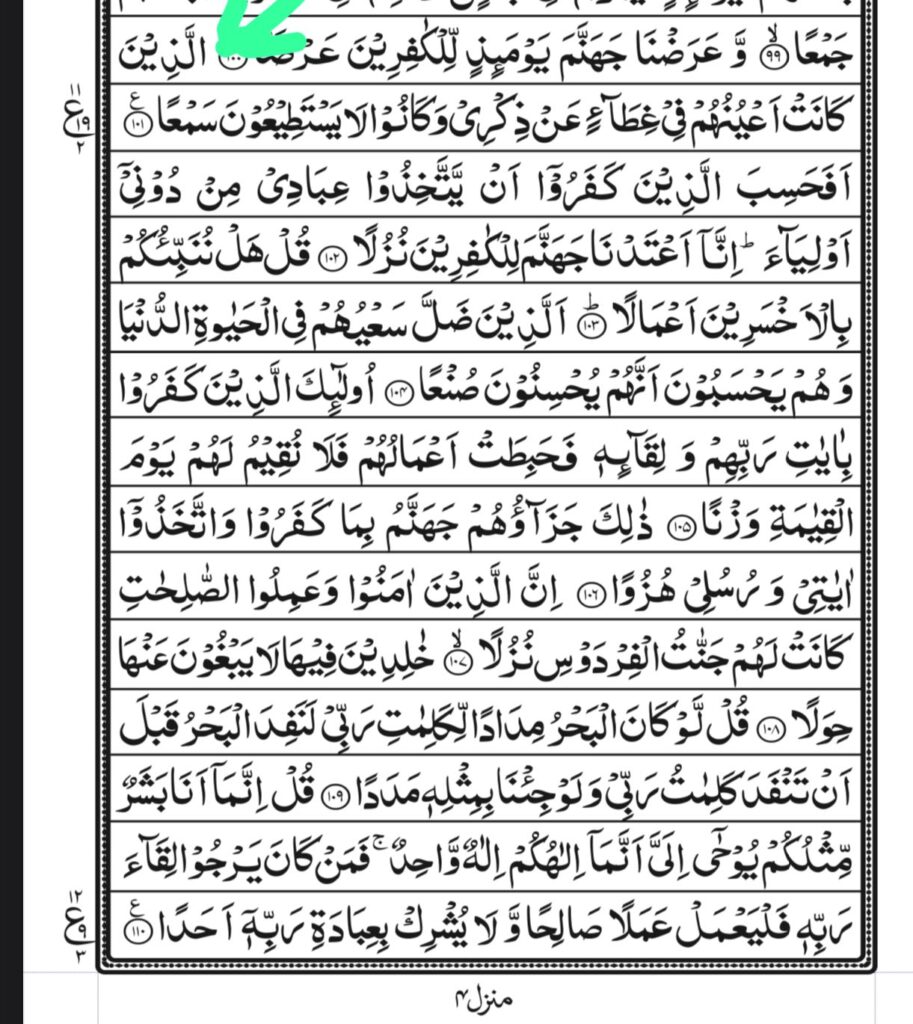 جَمْعًا ۙ﴿۹۹﴾ وَّ عَرَضْنَا جَهَنَّمَ يَوْمَئِذٍ لِّلْكٰفِرِيْنَ عَرْضَا الَّذِيْنَ
كَانَتْ اَعْيُنُهُمْ فِيْ غِطَآءٍ عَنْ ذِكْرِيْ وَكَانُوْا لَا يَسْتَطِيْعُوْنَ سَمْعًا ﴿۱۰۱﴾ ع
۱۱ ع ۱۹ ۲
اَفَحَسِبَ الَّذِيْنَ كَفَرُوْۤا اَنْ يَّتَّخِذُوْا عِبَادِيْ مِنْ دُوْنِيْۤ
اَوْلِيَآءَ ؕ اِنَّاۤ اَعْتَدْنَا جَهَنَّمَ لِلْكٰفِرِيْنَ نُزُلًا ﴿۱۰۲﴾ قُلْ هَلْ نُنَبِّئُكُمْ
بِالْاَخْسَرِيْنَ اَعْمَالًا ؕ﴿۱۰۳﴾ اَلَّذِيْنَ ضَلَّ سَعْيُهُمْ فِي الْحَيٰوةِ الدُّنْيَا
وَ هُمْ يَحْسَبُوْنَ اَنَّهُمْ يُحْسِنُوْنَ صُنْعًا ﴿۱۰۴﴾ اُولٰٓئِكَ الَّذِيْنَ كَفَرُوْا
بِاٰيٰتِ رَبِّهِمْ وَ لِقَآئِهٖ فَحَبِطَتْ اَعْمَالُهُمْ فَلَا نُقِيْمُ لَهُمْ يَوْمَ
الْقِيٰمَةِ وَزْنًا ﴿۱۰۵﴾ ذٰلِكَ جَزَآؤُهُمْ جَهَنَّمُ بِمَا كَفَرُوْا وَاتَّخَذُوْۤا
اٰيٰتِيْ وَ رُسُلِيْ هُزُوًا ﴿۱۰۶﴾ اِنَّ الَّذِيْنَ اٰمَنُوْا وَعَمِلُوا الصّٰلِحٰتِ
كَانَتْ لَهُمْ جَنّٰتُ الْفِرْدَوْسِ نُزُلًا ۙ﴿۱۰۷﴾ خٰلِدِيْنَ فِيْهَا لَا يَبْغُوْنَ عَنْهَا
حِوَلًا ﴿۱۰۸﴾ قُلْ لَّوْ كَانَ الْبَحْرُ مِدَادًا لِّكَلِمٰتِ رَبِّيْ لَنَفِدَ الْبَحْرُ قَبْلَ
اَنْ تَنْفَدَ كَلِمٰتُ رَبِّيْ وَلَوْ جِئْنَا بِمِثْلِهٖ مَدَدًا ﴿۱۰۹﴾ قُلْ اِنَّمَاۤ اَنَا بَشَرٌ
مِّثْلُكُمْ يُوْحٰۤى اِلَيَّ اَنَّمَاۤ اِلٰهُكُمْ اِلٰهٌ وَّاحِدٌ ۚ فَمَنْ كَانَ يَرْجُوْا لِقَآءَ
رَبِّهٖ فَلْيَعْمَلْ عَمَلًا صَالِحًا وَّ لَا يُشْرِكْ بِعِبَادَةِ رَبِّهٖۤ اَحَدًا ﴿۱۱۰﴾ ع
۱۲ ع ۹ ۳
منزل ۴